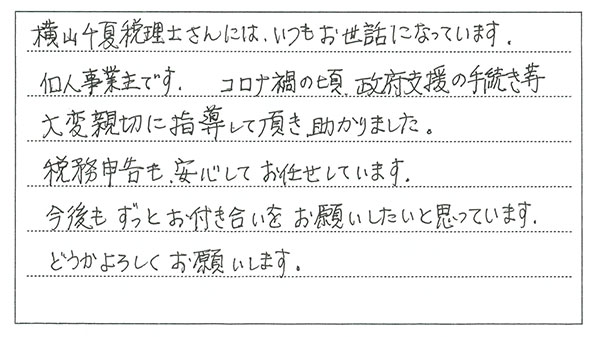 横山千夏税理士さんには、いつもお世話になっています.
個人事業主です. コロナ禍の頃、政府支援の手続き等
大変親切に指導して頂き、助かりました。
税務申告も、安心してお任せしています.
今後も ずっとお付き合いを お願いしたいと思っています.
どうかよろしく お願いします.